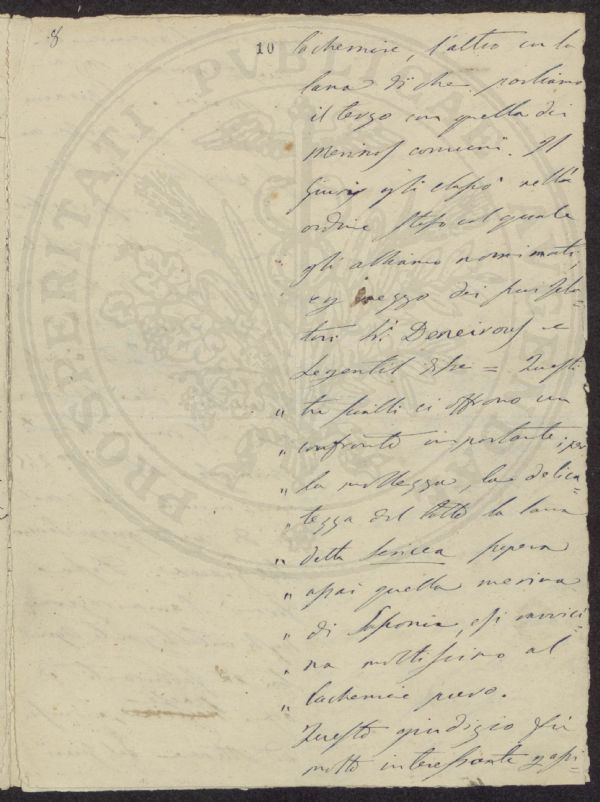 8
10
Cachemire, l'altro con la
lana di che parliamo
il terzo con quella dei
merinos comuni. Il
Giurì gli classò nell'
ordine stesso col quale
gli abbiamo nominati,
mezzo dei suoi rela=
tori Sri. Deneirous e
Legentil disse = Questi
„ tre scialli ci offrono un
„ confronto importante; per
„ la mollezza, la delica=
„ tezza del tatto la lana
„ detta sericea supera
„ assai quella merina
„ di Sassonia, e si avvici=
„ na moltissimo al
„ Cachemire puro.
Questo giudizio fu
molto interessante
PROSPERITATI PUBLICAE